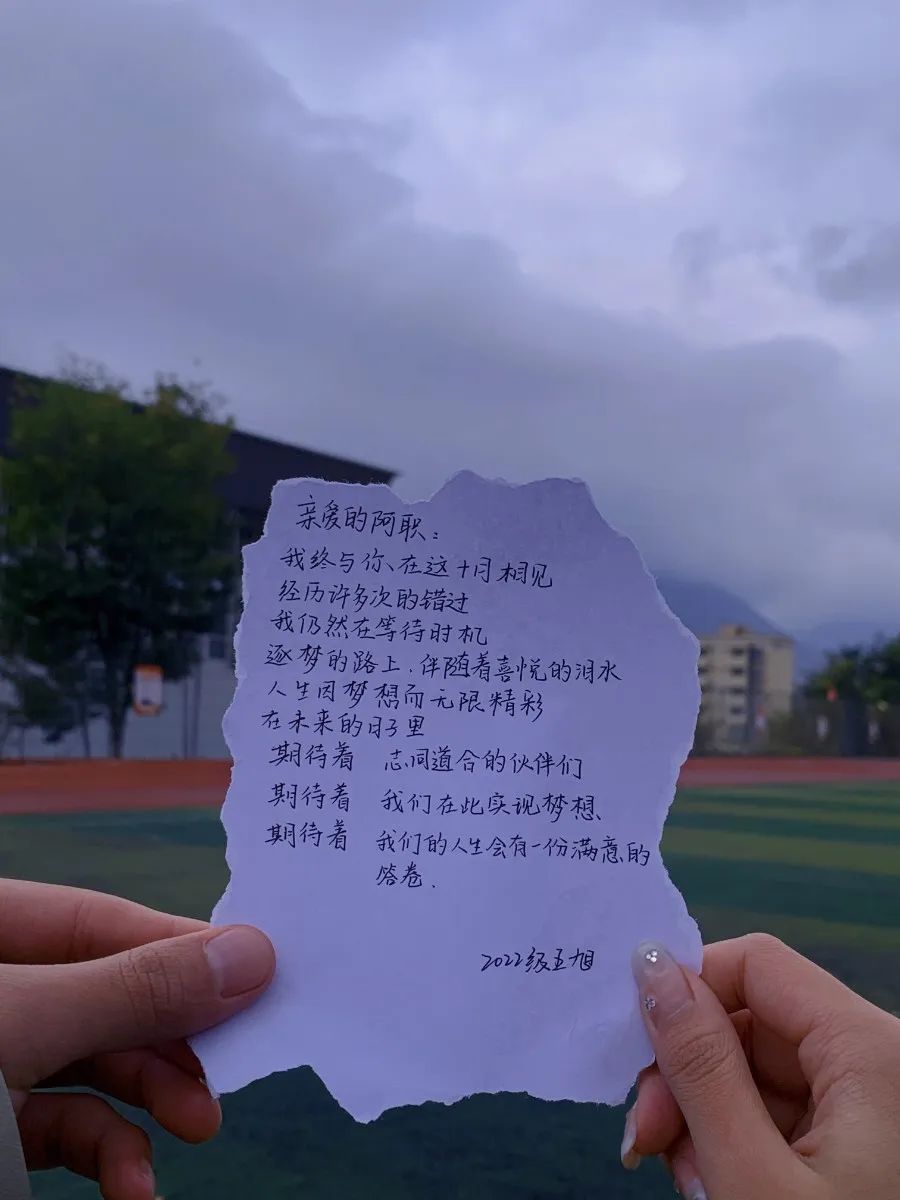 亲爱的阿职：
我终与你、在这十月相见
经历许多次的错过
我仍然在等待时机
逐梦的路上、伴随着喜悦的泪水
人生因梦想而无限精彩
在未来的日子里
期待着 志同道合的伙伴们
期待着 我们在此实现梦想、
期待着 我们的人生会有一份满意的
答卷、
2022级王旭